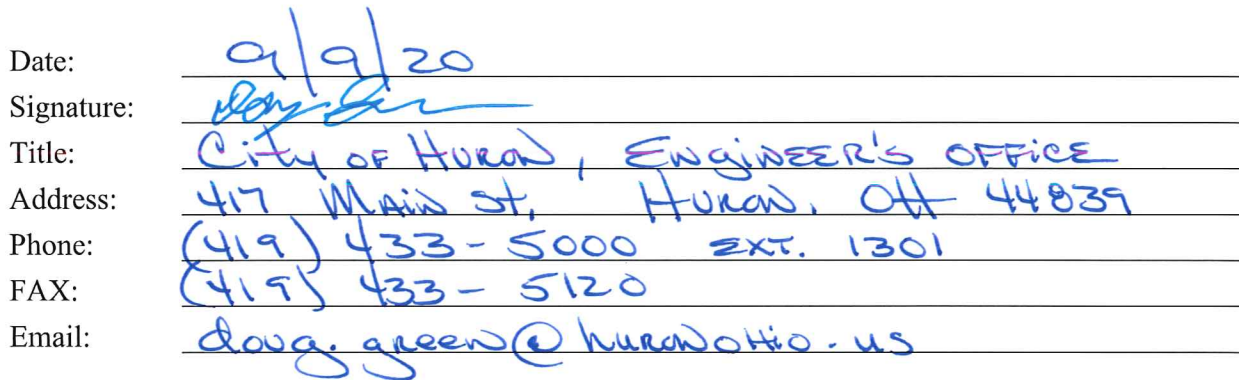 Date: 9/9/20
Signature:
Title: City of Huron, Engineer's Office
Address: 417 Main St. Huron, OH 44839
Phone: (419) 433-5000 EXT. 1301
FAX: (419) 433-5120
Email: doug.green@huronohio.us